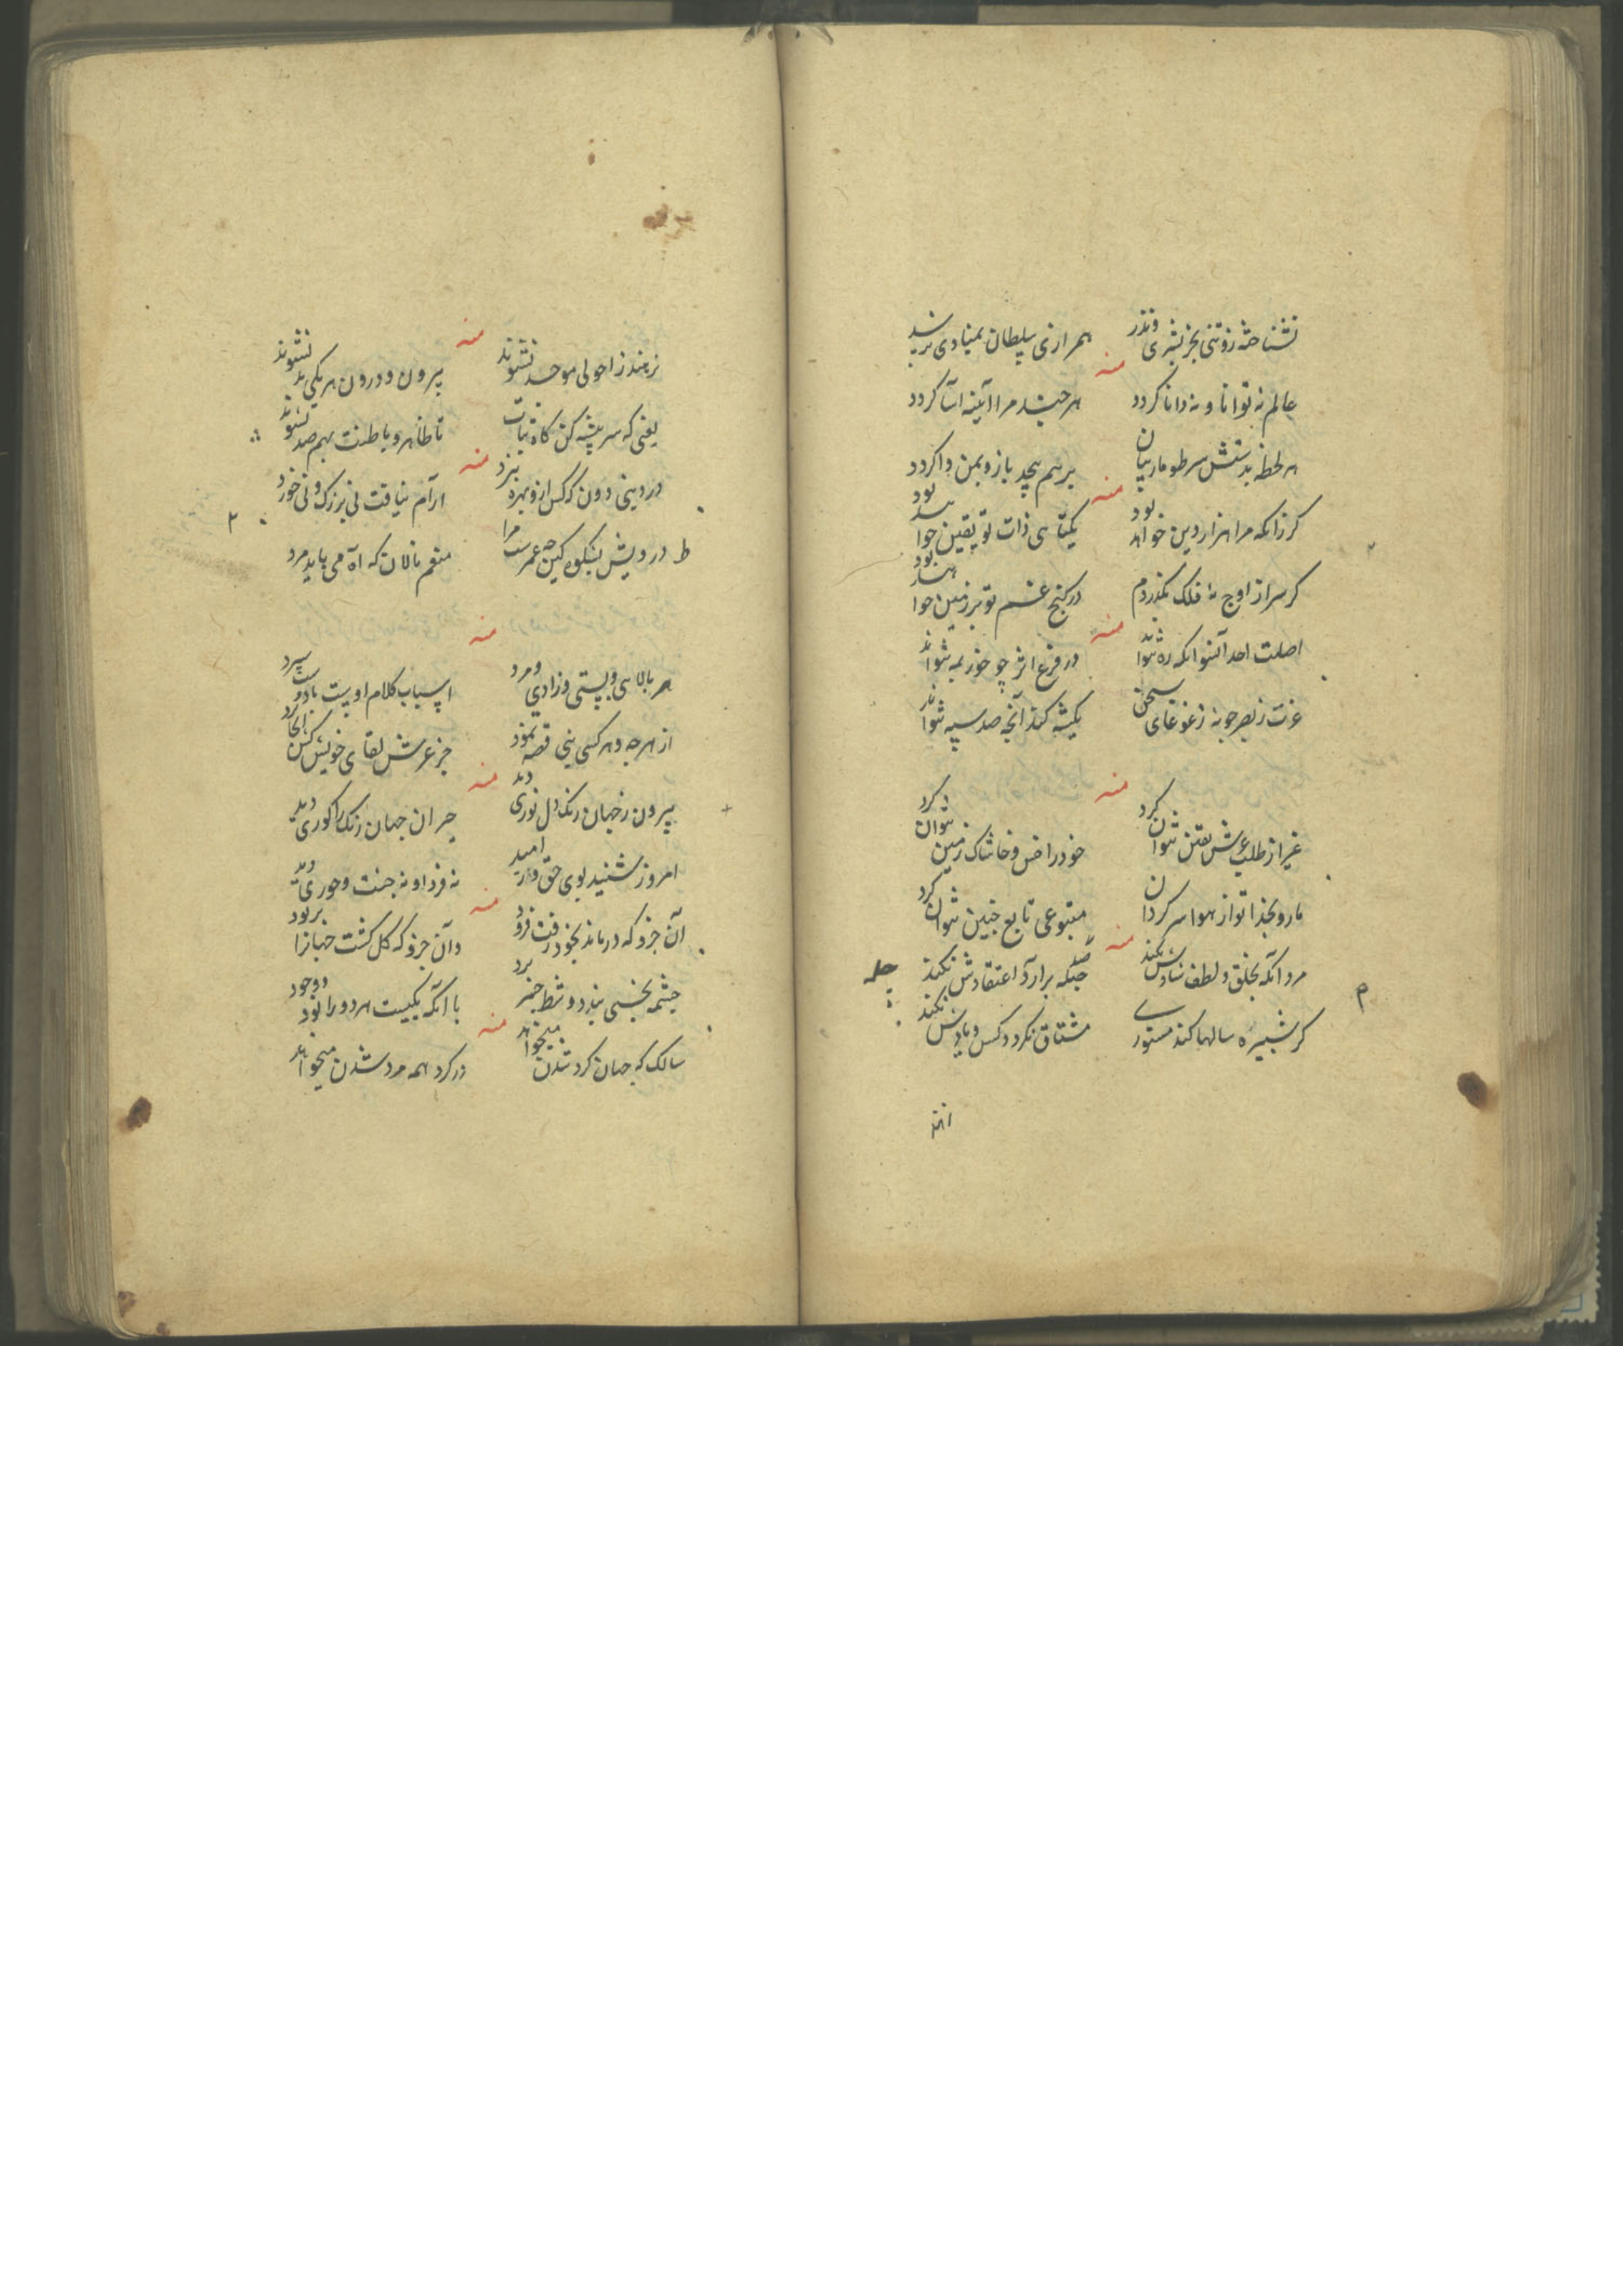 نشناخته زوتنی بجز بشری و نذر
همرازی سلطان بمنادی نرسد
منه
عالم نه توانا و نه دانا کردد
هر جشد مرا آینه آسا کردد
هر لحظه بدستش سر طومار بیان
برهم پیچد باز و بمن وا کردد
منه
کر زانکه مرا هزار دین خواهد بود
یکتایی ذات تو یقین خواهد بود
کر سر از اوج نه فلک بکذردم
در کنج غم تو بر زمین خواهد بود
منه
اصلت احد آنتوانکه ده نتواند
در فرع اثر چو خور بمه نتواند
عزت ز بصر جو نه ز غوغای سخن
یک شه کند آنچه صد سپه نتواند
منه
غیر از طلب عرش یقین نتوان کرد
خود را خس و خاشاک زمین نتوان کرد
ما رو بخدا تو از هوا سر کردان
متبوعی تابع چنین نتوان کرد
منه
مرد آنکه بخلق و لطف شادش نکند
صد چله برآرد اعتقادش نکند
چله
کر شبپره سالها کند مستوری
مشتاق نکردد کس و یادش نکند
م
منه
زینند ز احولی موحد نشوند
بیرون و درون هر یکی بد نشوند
یعنی که سر بیشه کن کاه نبات
تا ظاهر و باطنت بهم صد نشوند
منه
در دینی دون که کس ازو بهره نبرد
آرام نیافت نی بزرک و نی خورد
ط درویش بشکوه کین چه عمرست مرا
منعم نالان که آه می باید مرد
منه
هر بالایی و پستی و زادی و مرد
اسباب کلام اوست با دوست سپرد
از هر چه و هر کسی نبی قصه نمود
جز عرش لقای خویش کس
منه
بیرون ز جهان رنک دل نوری دید
حیران جهان رنک را کوری دید
امروز شنید بوی حق وارد امید
نه فردا و نه جنت و حوری دید
منه
آن جزو که درماند بخود رفت فرو
وآن جزو که کل کشت جهانرا بربود
چشمه بخسی بند دو شط
با آنکه یکیست هر دو را بود وجود
منه
سالک که جهان کرد شدن میخواهد
در کرد همه مرد شدن میخواهد